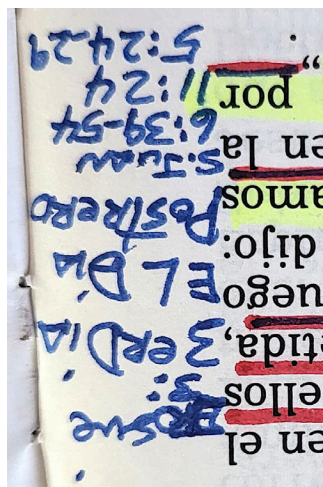 en el
ellos
etida,
uego
dijo:
amos
en la
por
3erDiA
EL DiA
POSTRERO
S.JUAN
6:39-54
11:24
5:24.29